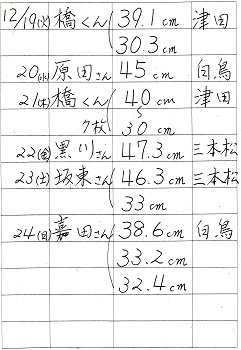 12/19(火) 橋くん 39.1cm 津田
30.3cm
20(水) 原田さん 45cm 白鳥
21(木) 橋くん 40cm 津田
7枚 〜
30cm
22(金) 黒川さん 47.3cm 三本松
23(土) 坂東さん 46.3cm 三本松
33cm
24(日) 嘉田さん 38.6cm 白鳥
33.2cm
32.4cm